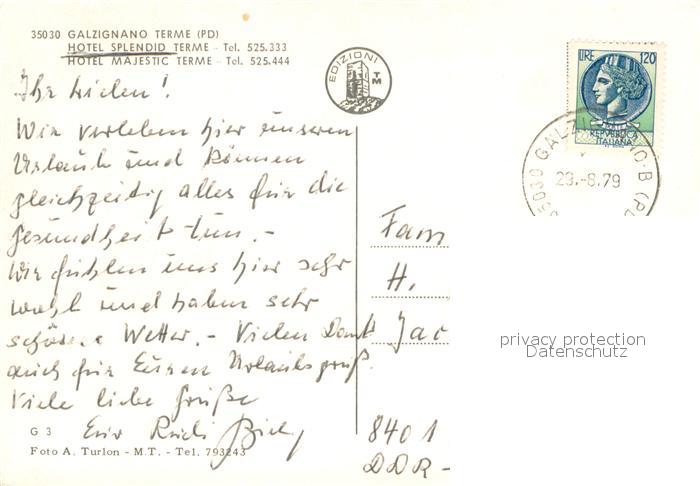 35030 GALZIGNANO TERME (PD)
HOTEL SPLENDID TERME - Tel. 525.333
HOTEL MAJESTIC TERME - Tel. 525.444
EDIZIONI
TM
LIRE 120
REPVBBLICA
ITALIANA
35030 GALZIGNANO·B (PD
29.-8.79
Ihr Lieben!
Wir verleben hier unseren
Urlaub und können
gleichzeitig alles für die
Gesundheit tun. -
Wir fühlen uns hier sehr
wohl und haben sehr
schönes Wetter. - Vielen Dank
auch für Euren Urlaubsgruß.
Viele liebe Grüße
Euer Rudi
Fam
H.
Jac
8401
DDR -
privacy protection
Datenschutz
G 3
Foto A. Turlon - M.T. - Tel. 793243